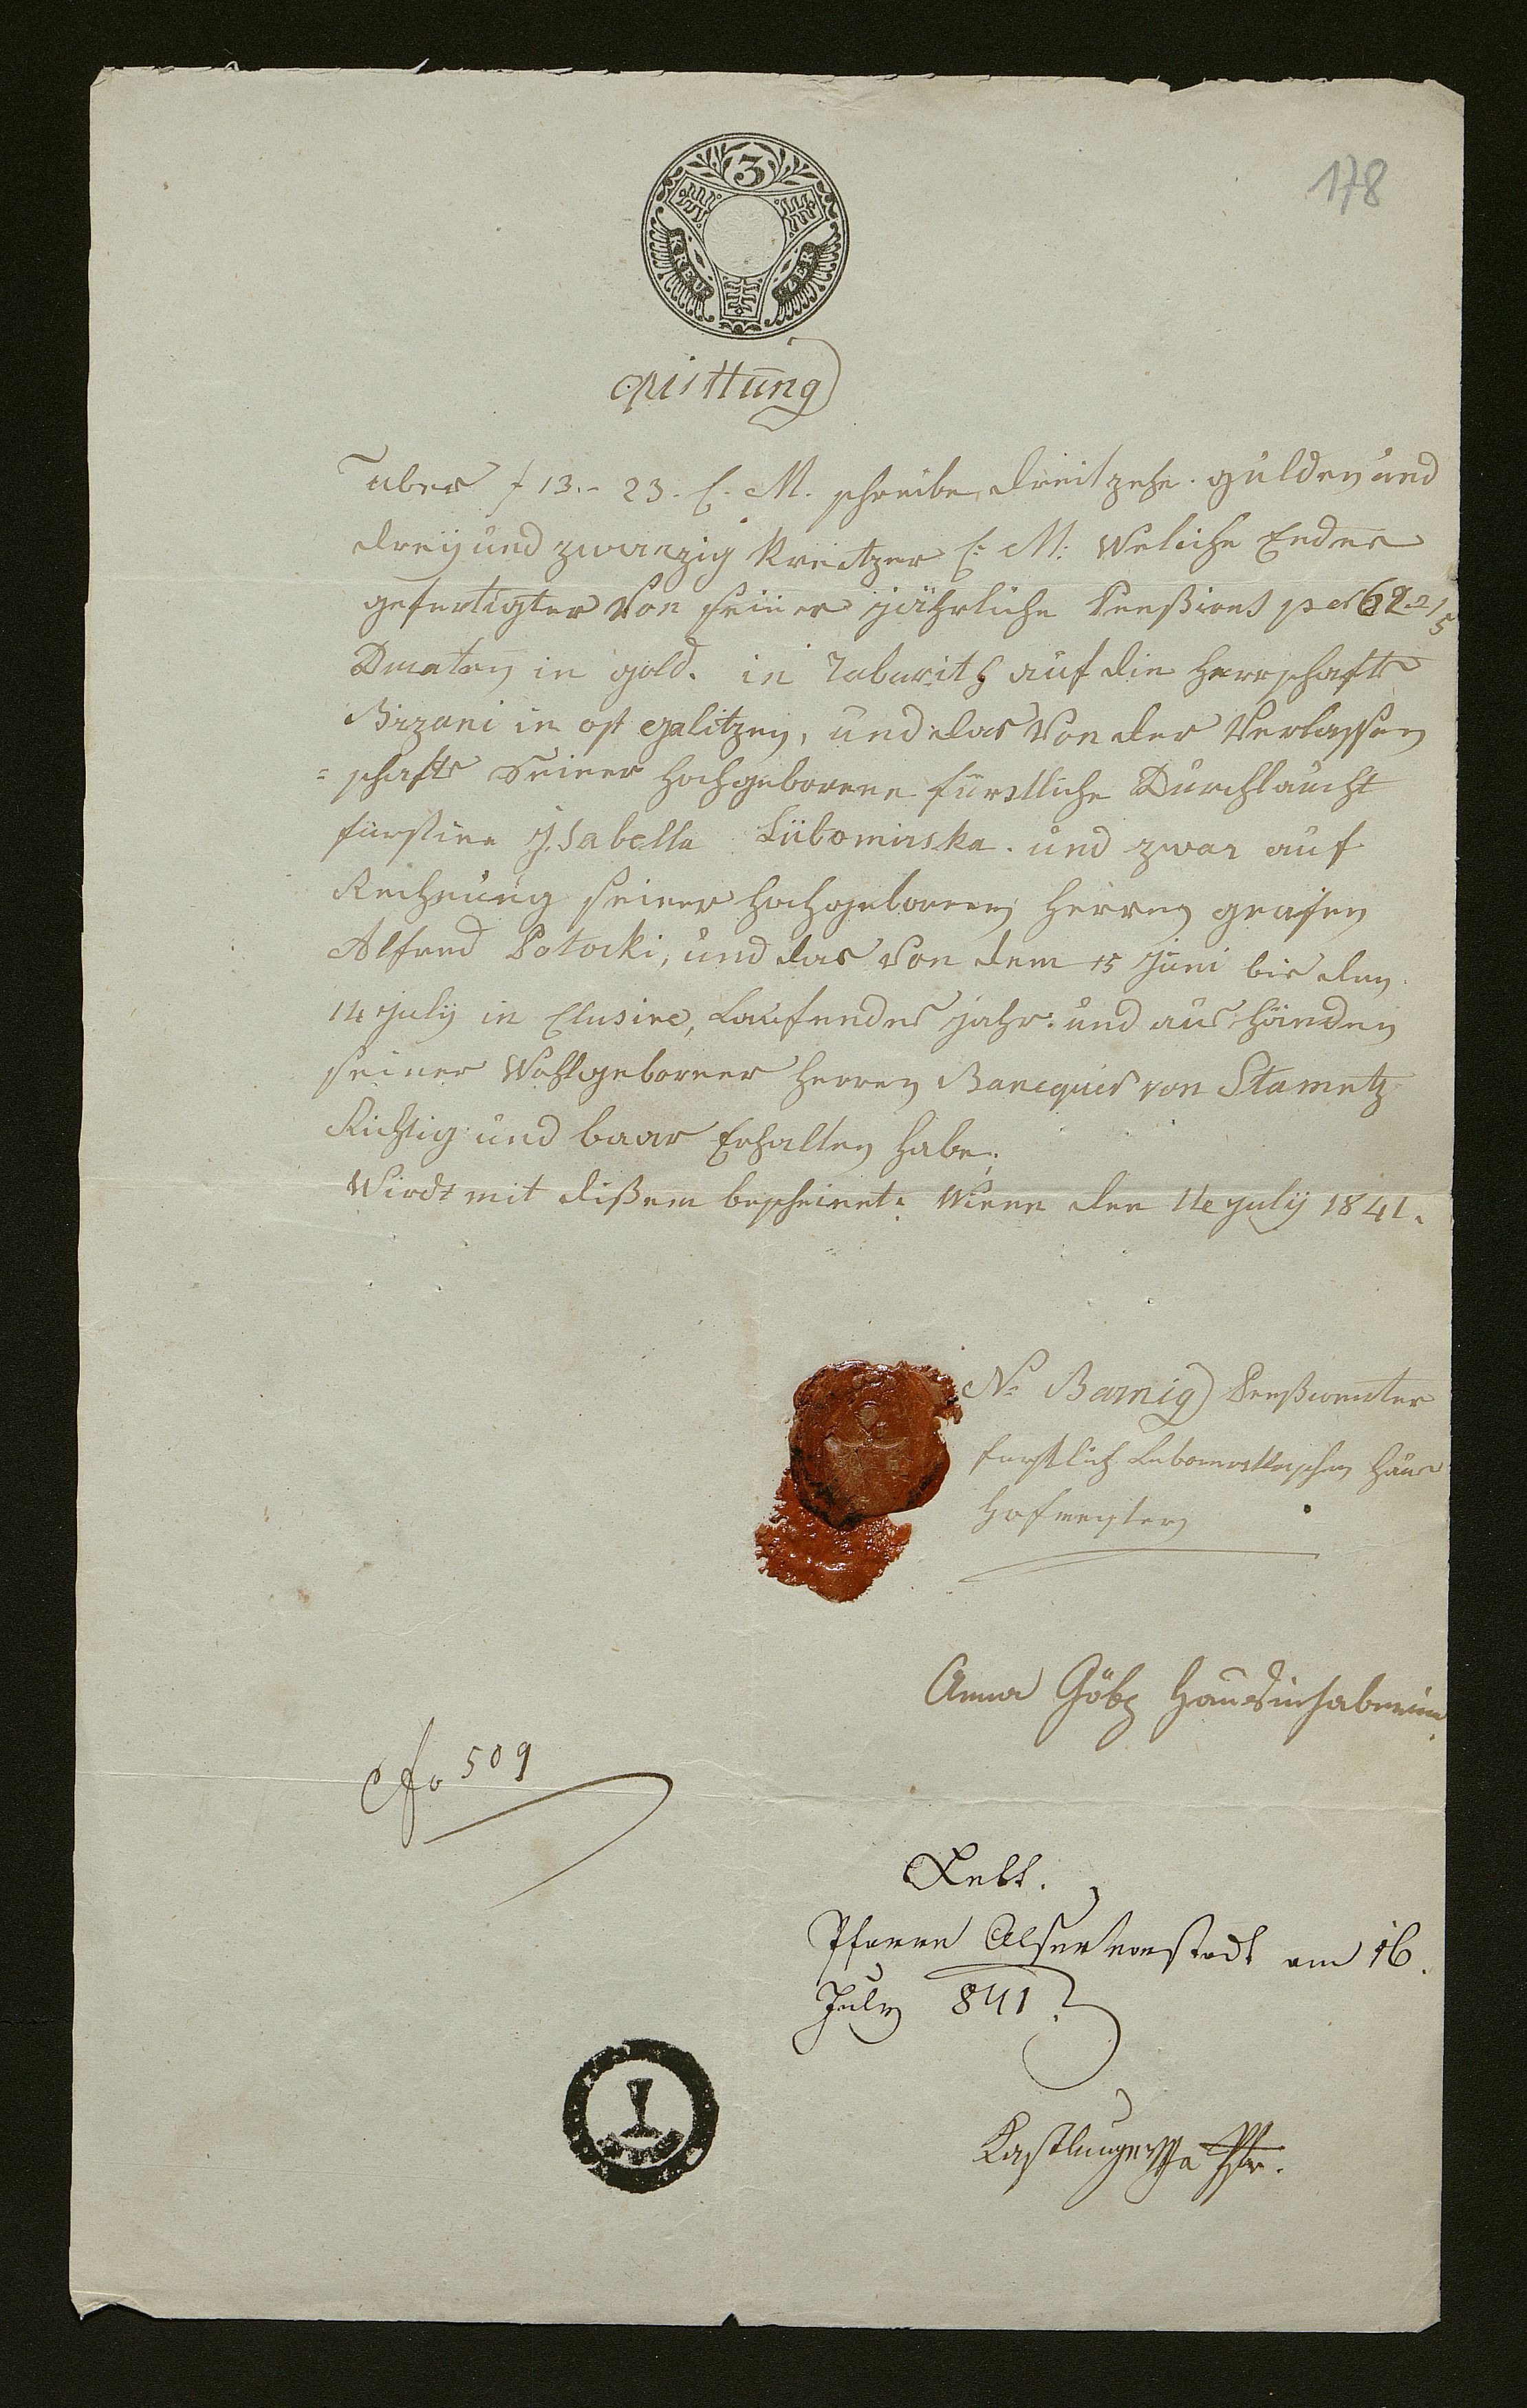 178
3
KREU ZER
quittung
Über f 13.- 23. C. M. schreibe, dreitzehe. gulden und
dreÿ und zwanzig Kreitzer C: M: Weliche Endes
gefertigter Von seiner jährliche Penßions per 62 2/5
Ducaten in gold. in Tabarith auf die Herrschafts
Brzani in ost galitzen, und das Von der Verlassen
=schafts Seiner Hochgeborene fürstliche Durchlaucht
fürstinn J. Sabella Lübomirska. und zwar auf
Rechnung seiner Hochgeboren Herren grafen
Alfred Potocki, und das Von dem 15 Juni bis den
14 Julÿ in Clusive, Laufendes jahr. und aus Händen
seiner Wohlgeborner Herren Bancquier von Stametz
Richtig und baar Erhalten habe;
Wirdt mit dißem bescheinet: Wienn den 14 Julÿ 1841.
N: Barnig Penßionirter
furstlich Lubomirskischen Haus
Hofmeister
Anna Göbz Hausinhaberin
No 509
Lebt.
Pfarre Alservorstadt am 16.
July 841.
Kastlunger Pfr.